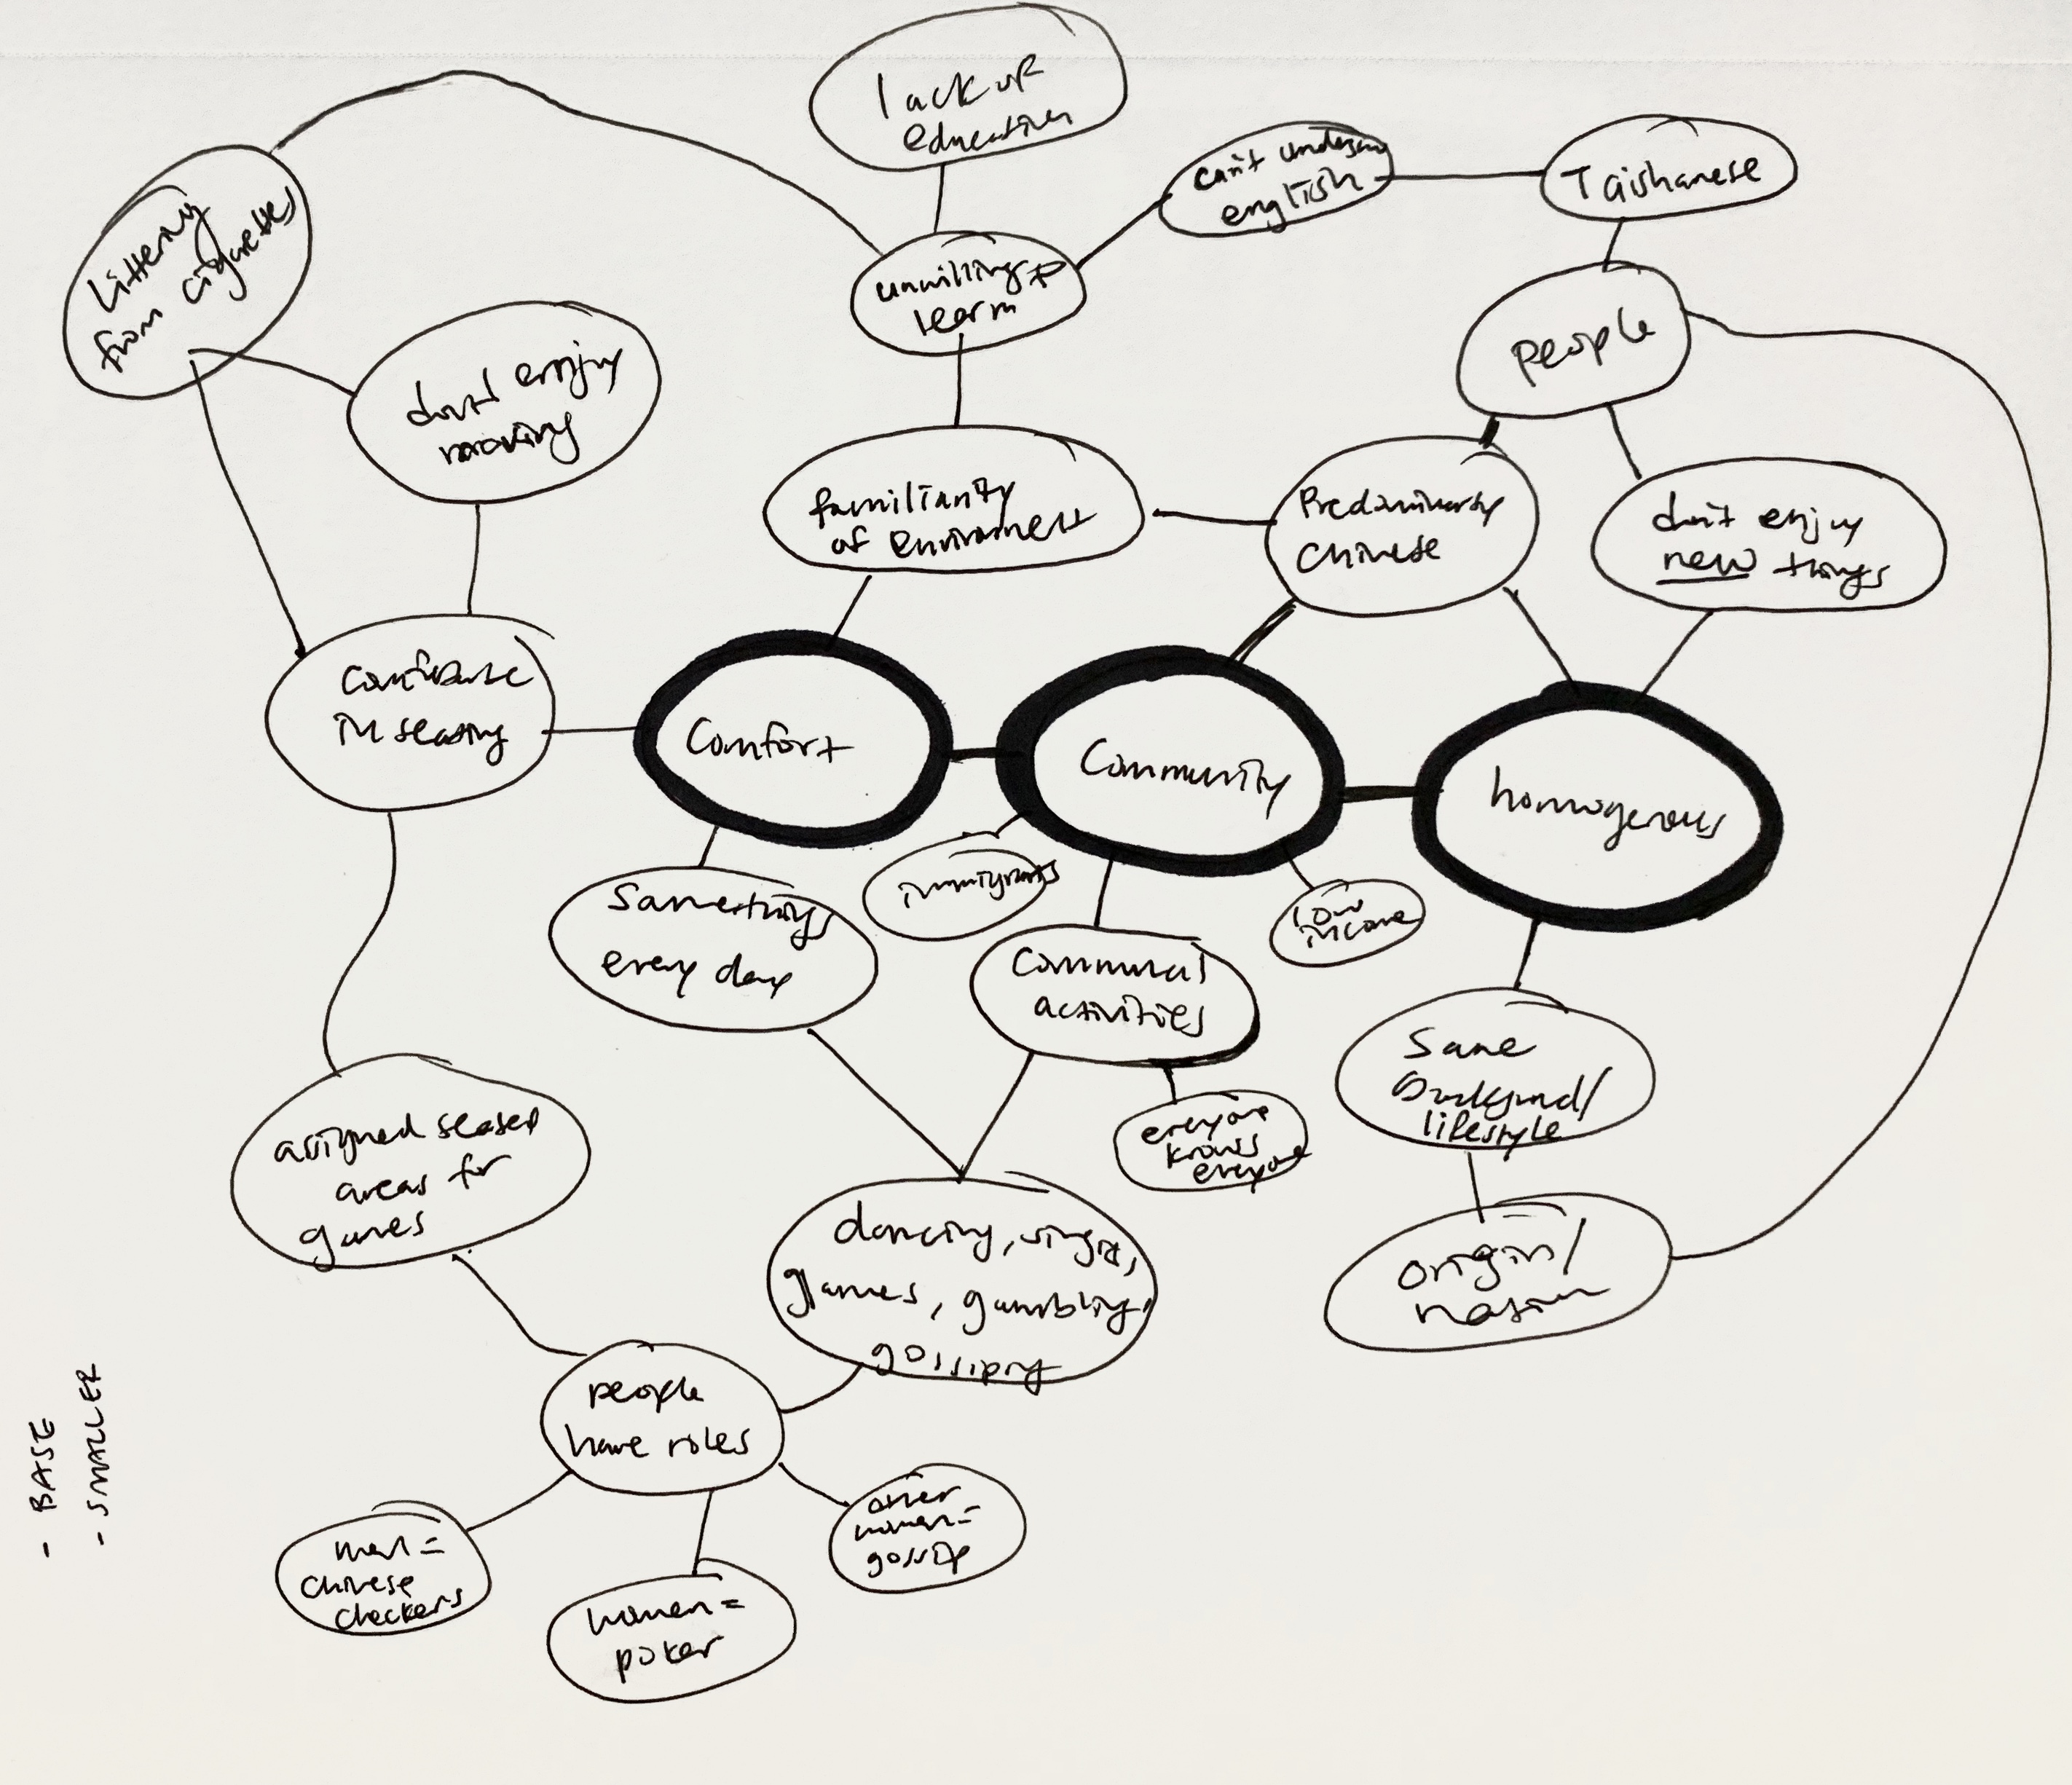 lack of
education
can't understand
english
Taishanese
Littering
from cigarettes
unwilling to
learn
people
don't enjoy
moving
familiarity
of enviroment
Predominantly
Chinese
don't enjoy
new things
in seating
Comfort
Community
homogenous
immigrants
low
income
Same things
every day
Communal
activities
Same
background/
lifestyle
everyone
knows
everyone
assigned seated
areas for
games
dancing, singing,
games, gambling,
gossiping
origin/
nation
people
have roles
- BASE
- SMALLER
men =
chinese
checkers
women =
poker
other
women =
gossip